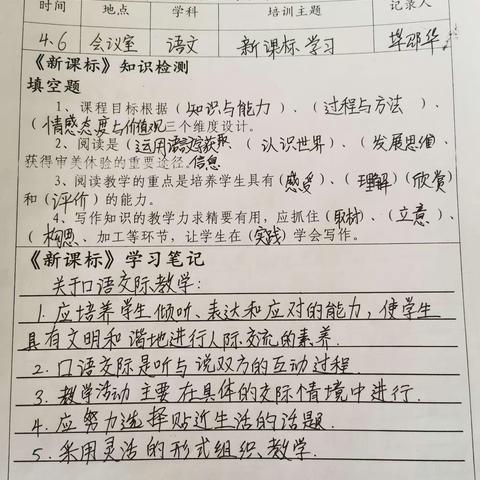 时间 地点 学科 培训主题 记录人
4.6 会议室 语文 新课标学习
《新课标》知识检测
填空题
1、课程目标根据（知识与能力）、（过程与方法）、
（情感态度与价值观三个维度设计。
2、阅读是（运用语言文字获取、（认识世界）、（发展思维、
获得审美体验的重要途径。信息
3、阅读教学的重点是培养学生具有（感受）、（理解）（欣赏）
和（评价）的能力。
4、写作知识的教学力求精要有用，应抓住（取材）、（立意）、
（构思、加工等环节，让学生在（实践）学会写作。
《新课标》学习笔记
关于口语交际教学：
1. 应培养学生倾听、表达和应对的能力，使学生
具有文明和谐地进行人际交流的素养.
2. 口语交际是听与说双方的互动过程.
3. 教学活动主要在具体的交际情境中进行.
4. 应努力选择贴近生活的话题.
5. 采用灵活的形式组织教学.